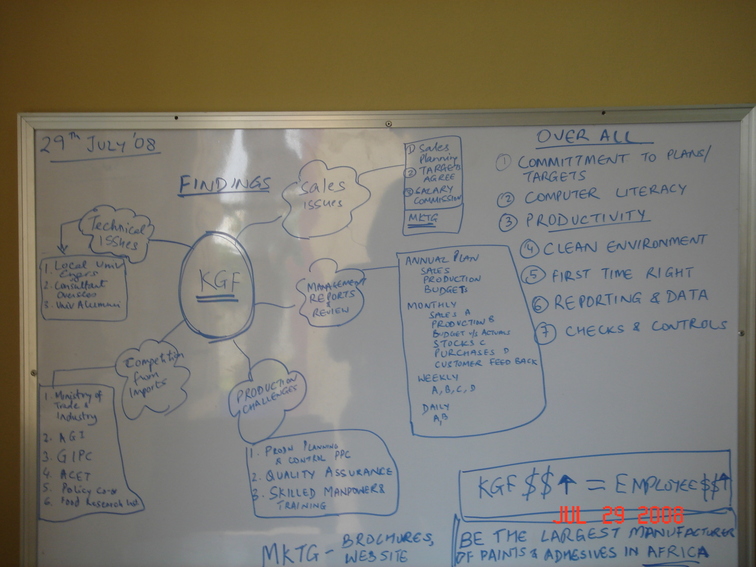 29TH JULY '08
FINDINGS
KGF
Sales
ISSUES
1 Sales
Planning
2 TARGETS
AGREE
3 SALARY
COMMISSION
MKTG
Technical
ISSUES
1. Local Univ
2. Consultant
Overseas
3. Univ Alumni
MANAGEMENT
REPORTS &
REVIEW
ANNUAL PLAN
SALES
PRODUCTION
BUDGETS
MONTHLY
SALES A
PRODUCTION B
BUDGET v/s ACTUALS
STOCKS C
PURCHASES D
CUSTOMER FEED BACK
WEEKLY
A, B, C, D
DAILY
A, B
Competition
from
Imports
1. Ministry of
Trade &
Industry
2. AGI
3. GIPC
4. ACET
5. Policy
6. Food Research
PRODUCTION
CHALLENGES
1. PRODN PLANNING
& CONTROL PPC
2. QUALITY ASSURANCE
3. SKILLED MANPOWER &
TRAINING
OVER ALL
1 COMMITTMENT TO PLANS/
TARGETS
2 COMPUTER LITERACY
3 PRODUCTIVITY
4 CLEAN ENVIRONMENT
5 FIRST TIME RIGHT
6 REPORTING & DATA
7 CHECKS & CONTROLS
KGF $$ ↑ = EMPLOYEE $$ ↑
JUL 29 2008
BE THE LARGEST MANUFACTURER
OF PAINTS & ADHESIVES IN AFRICA
MKTG - BROCHURES,
WEBSITE